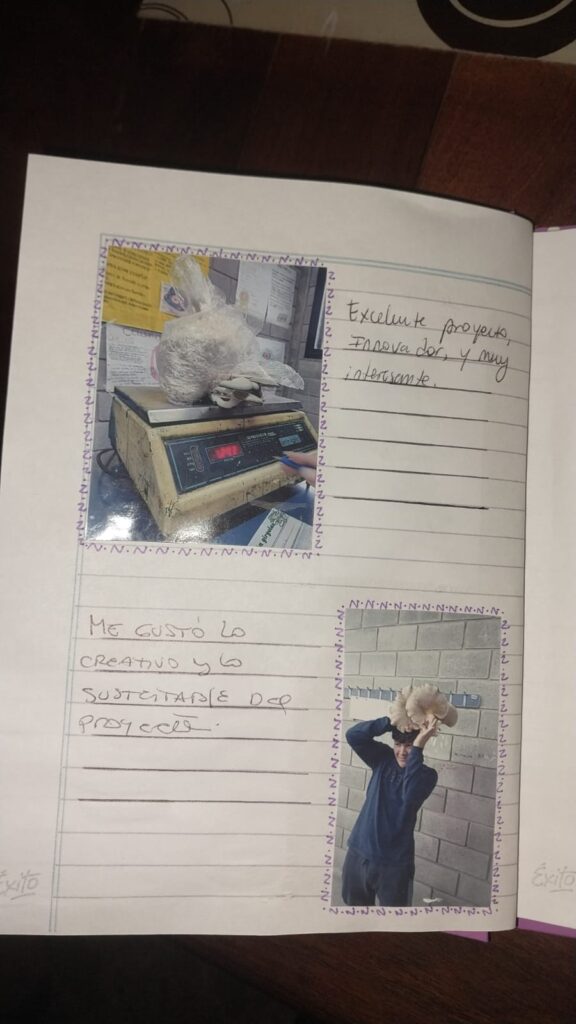 Excelente proyecto,
Innovador, y muy
interesante.
ME GUSTÓ LO
CREATIVO y lo
SUSTENTABLE DEL
PROYECTO.
Éxito
Éxito